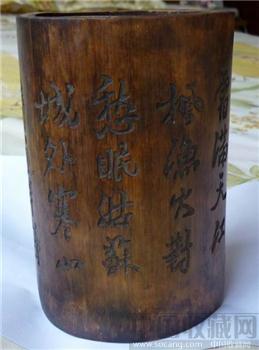 霜满天江
枫渔火對
愁眠姑蘇
城外寒山
www.socang.com 中国收藏网